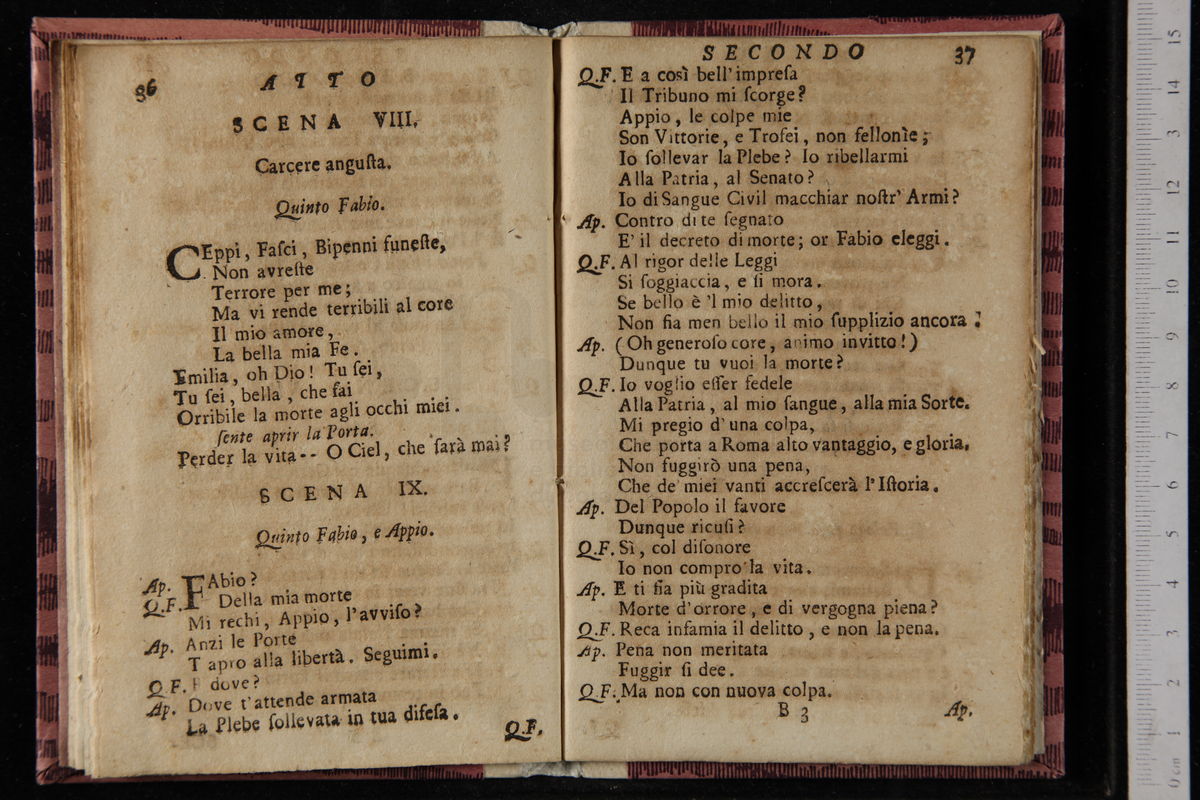 36
ATTO
SCENA VIII.
Carcere anguſta.
Quinto Fabio.
CEppi, Faſci, Bipenni funeſte,
Non avreſte
Terrore per me;
Ma vi rende terribili al core
Il mio amore,
La bella mia Fe.
Emilia, oh Dio! Tu ſei,
Tu ſei, bella, che fai
Orribile la morte agli occhi miei.
ſente aprir la Porta.
Perder la vita-- O Ciel, che ſarà mai?
SCENA IX.
Quinto Fabio, e Appio.
Ap. FAbio?
Q.F. Della mia morte
Mi rechi, Appio, l'avviſo?
Ap. Anzi le Porte
T apro alla libertà. Seguimi.
Q.F. E dove?
Ap. Dove t'attende armata
La Plebe ſollevata in tua difeſa.
Q.F.
SECONDO
37
Q.F. E a così bell'impreſa
Il Tribuno mi ſcorge?
Appio, le colpe mie
Son Vittorie, e Trofei, non fellonìe;
Io ſollevar la Plebe? Io ribellarmi
Alla Patria, al Senato?
Io di Sangue Civil macchiar noſtr' Armi?
Ap. Contro di te ſegnato
E' il decreto di morte; or Fabio eleggi.
Q.F. Al rigor delle Leggi
Si ſoggiaccia, e ſi mora.
Se bello è 'l mio delitto,
Non fia men bello il mio ſupplizio ancora.
Ap. (Oh generoſo core, animo invitto!)
Dunque tu vuoi la morte?
Q.F. Io voglio eſſer fedele
Alla Patria, al mio ſangue, alla mia Sorte.
Mi pregio d'una colpa,
Che porta a Roma alto vantaggio, e gloria.
Non fuggirò una pena,
Che de' miei vanti accreſcerà l'Iſtoria.
Ap. Del Popolo il favore
Dunque ricuſi?
Q.F. Sì, col diſonore
Io non compro la vita.
Ap. E ti fia più gradita
Morte d'orrore, e di vergogna piena?
Q.F. Reca infamia il delitto, e non la pena.
Ap. Pena non meritata
Fuggir ſi dee.
Q.F. Ma non con nuova colpa.
B 3
Ap.
0 cm 1 2 3 4 5 6 7 8 9 10 11 12 13 14 15